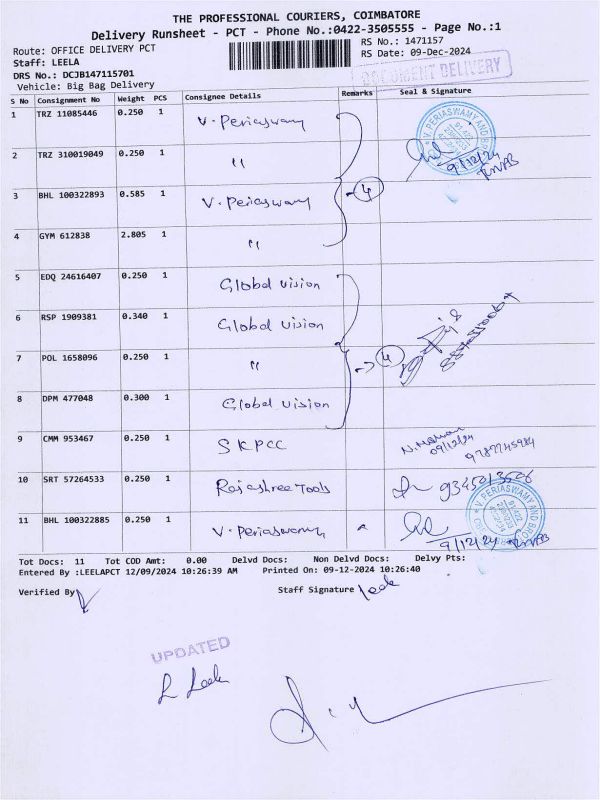 THE PROFESSIONAL COURIERS, COIMBATORE
Delivery Runsheet - PCT - Phone No.:0422-3505555 - Page No.:1
Route: OFFICE DELIVERY PCT
RS No.: 1471157
Staff: LEELA
RS Date: 09-Dec-2024
DRS No.: DCJB147115701
DOCUMENT DELIVERY
Vehicle: Big Bag Delivery
S No Consignment No Weight PCS Consignee Details Remarks Seal & Signature
1 TRZ 11085446 0.250 1 V. Periaswamy
2 TRZ 310019049 0.250 1 "
9/12/24
3 BHL 100322893 0.585 1 V. Periaswamy 4
4 GYM 612838 2.805 1 "
5 EDQ 24616407 0.250 1 Global vision
6 RSP 1909381 0.340 1 Global vision
7 POL 1658096 0.250 1 " 4
8 DPM 477048 0.300 1 Global vision
9 CMM 953467 0.250 1 SKPCC
09/12/24
10 SRT 57264533 0.250 1 Rajashree Tools
11 BHL 100322885 0.250 1 V. Periaswamy
9/12/24
Tot Docs: 11 Tot COD Amt: 0.00 Delvd Docs: Non Delvd Docs: Delvy Pts:
Entered By :LEELAPCT 12/09/2024 10:26:39 AM Printed On: 09-12-2024 10:26:40
Verified By
Staff Signature Leela
UPDATED